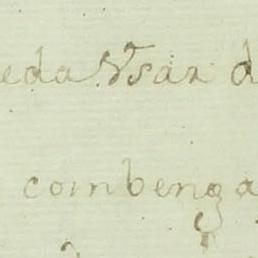 eda Vsar d
combenga